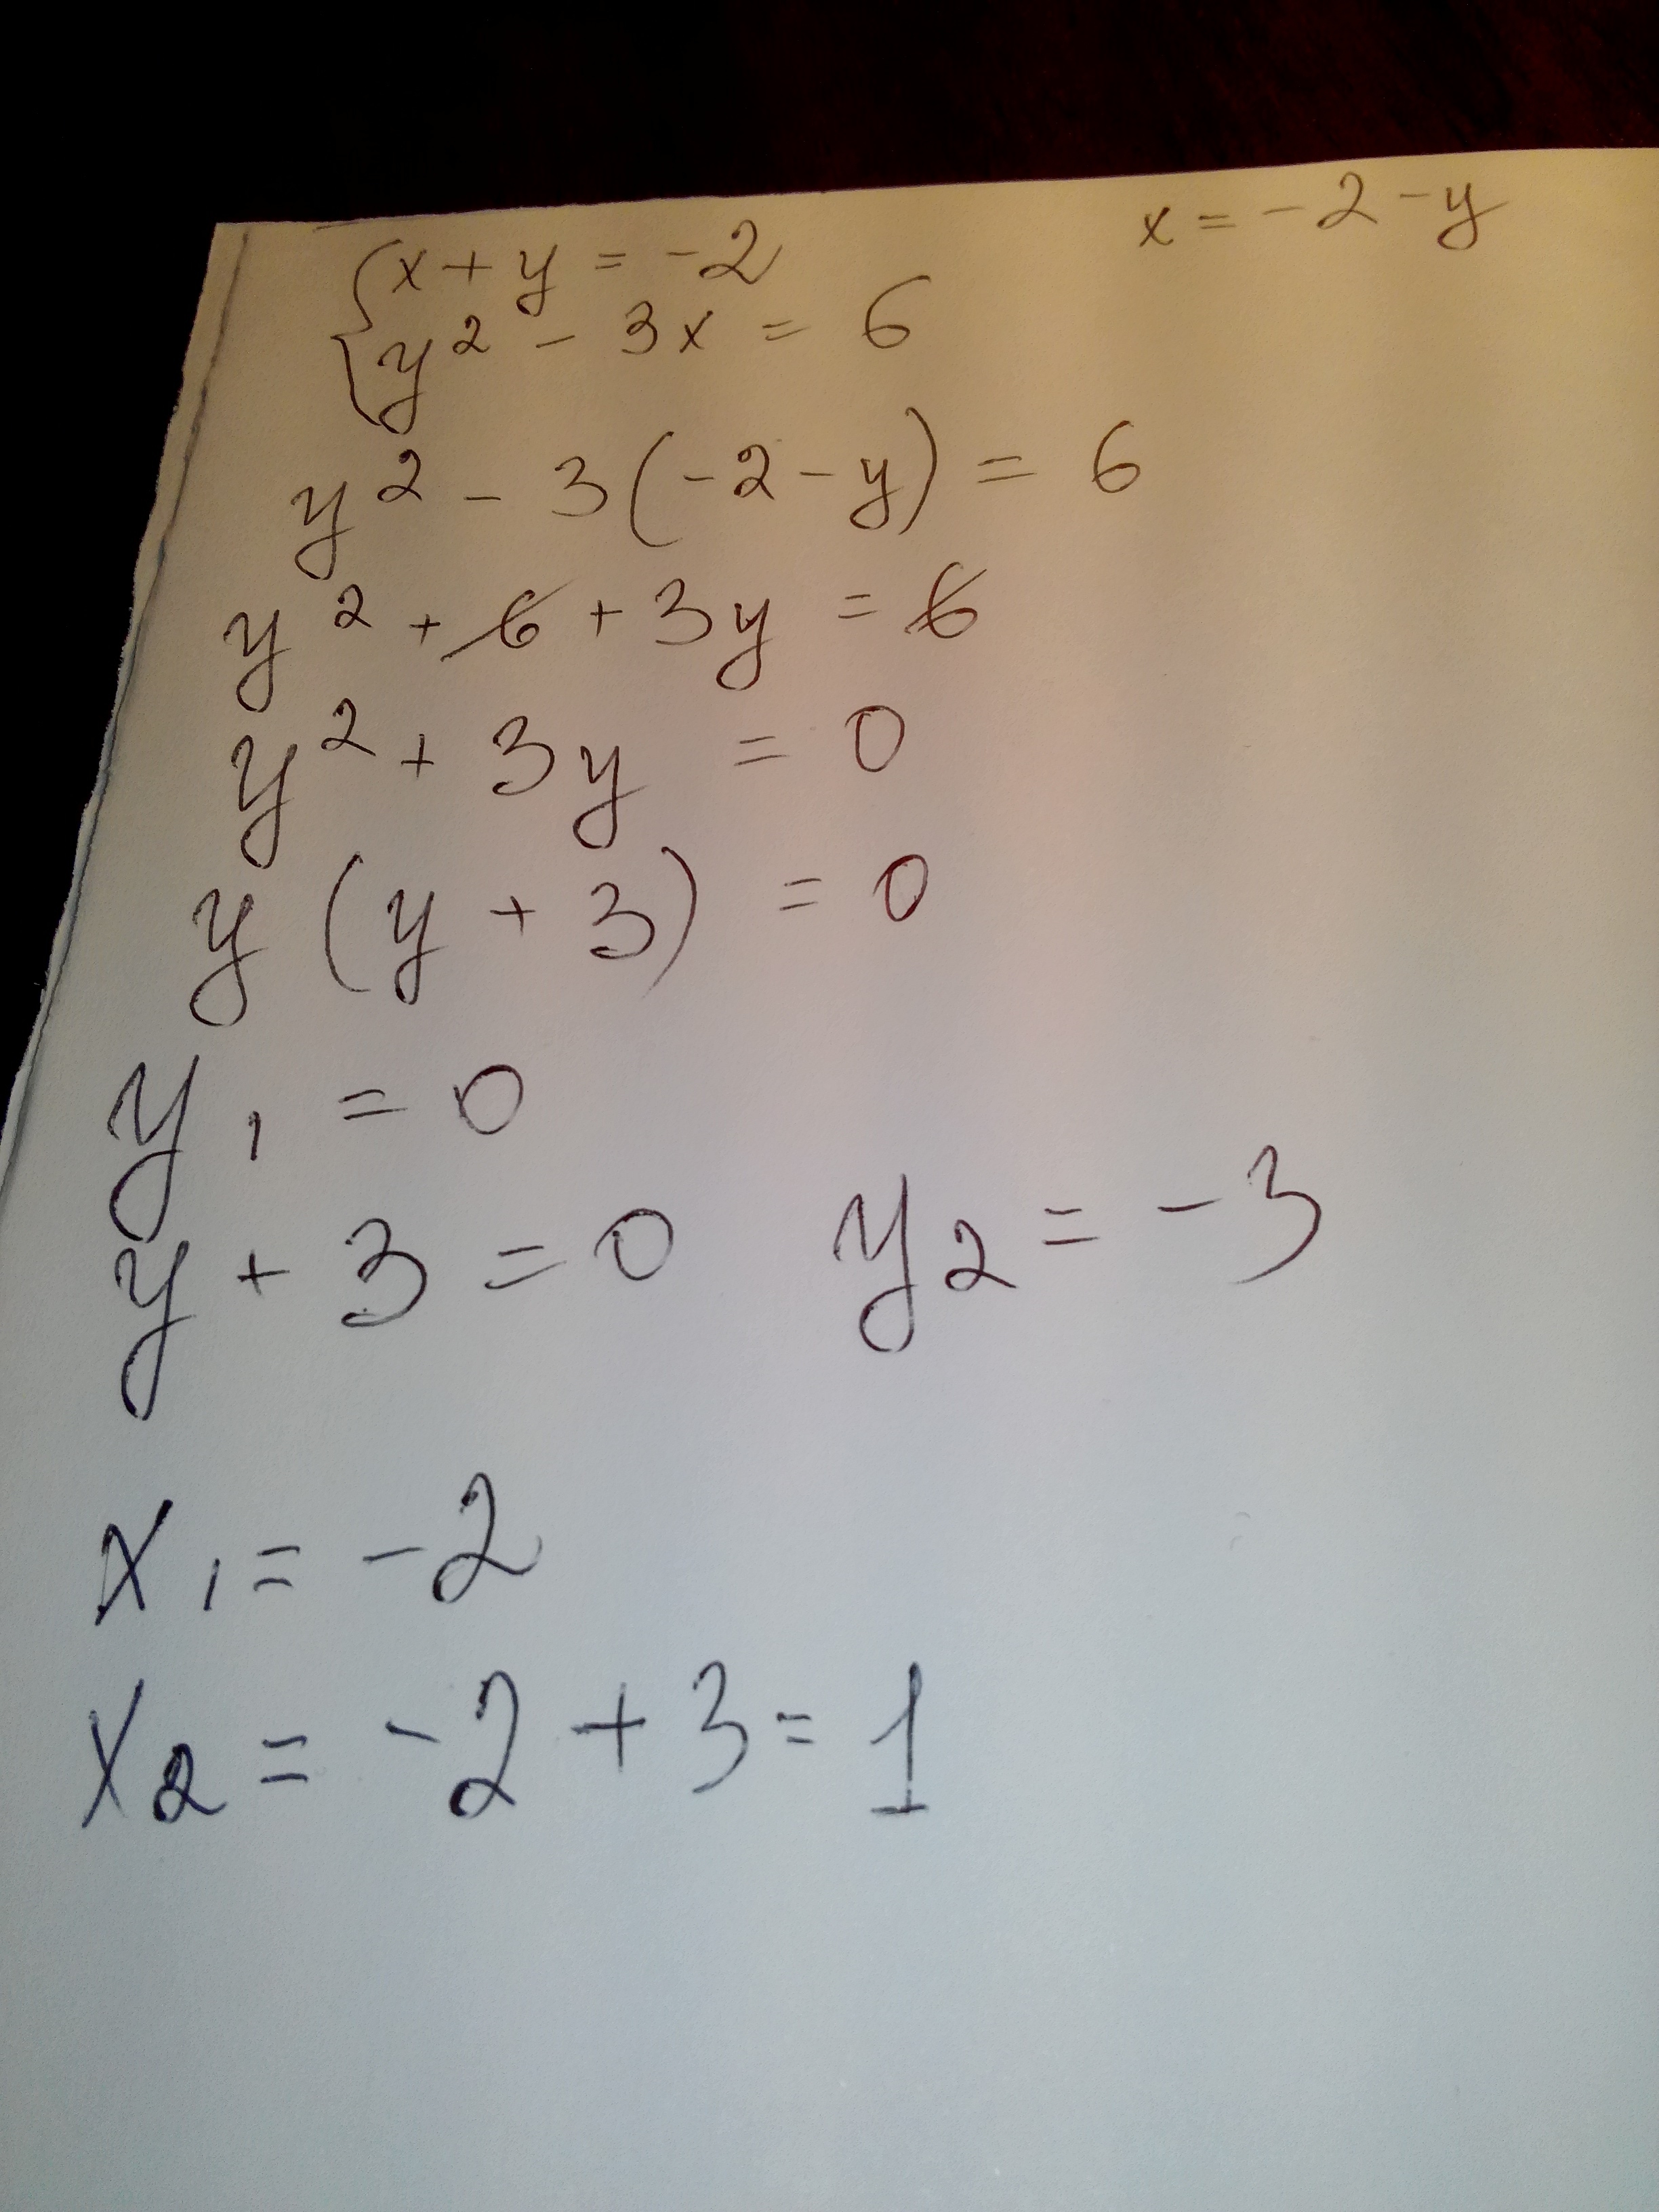 x + y = -2    x = -2 - y
y² - 3x = 6
y² - 3(-2 - y) = 6
y² + 6 + 3y = 6
y² + 3y = 0
y (y + 3) = 0
y₁ = 0
y + 3 = 0    y₂ = -3
x₁ = -2
x₂ = -2 + 3 = 1